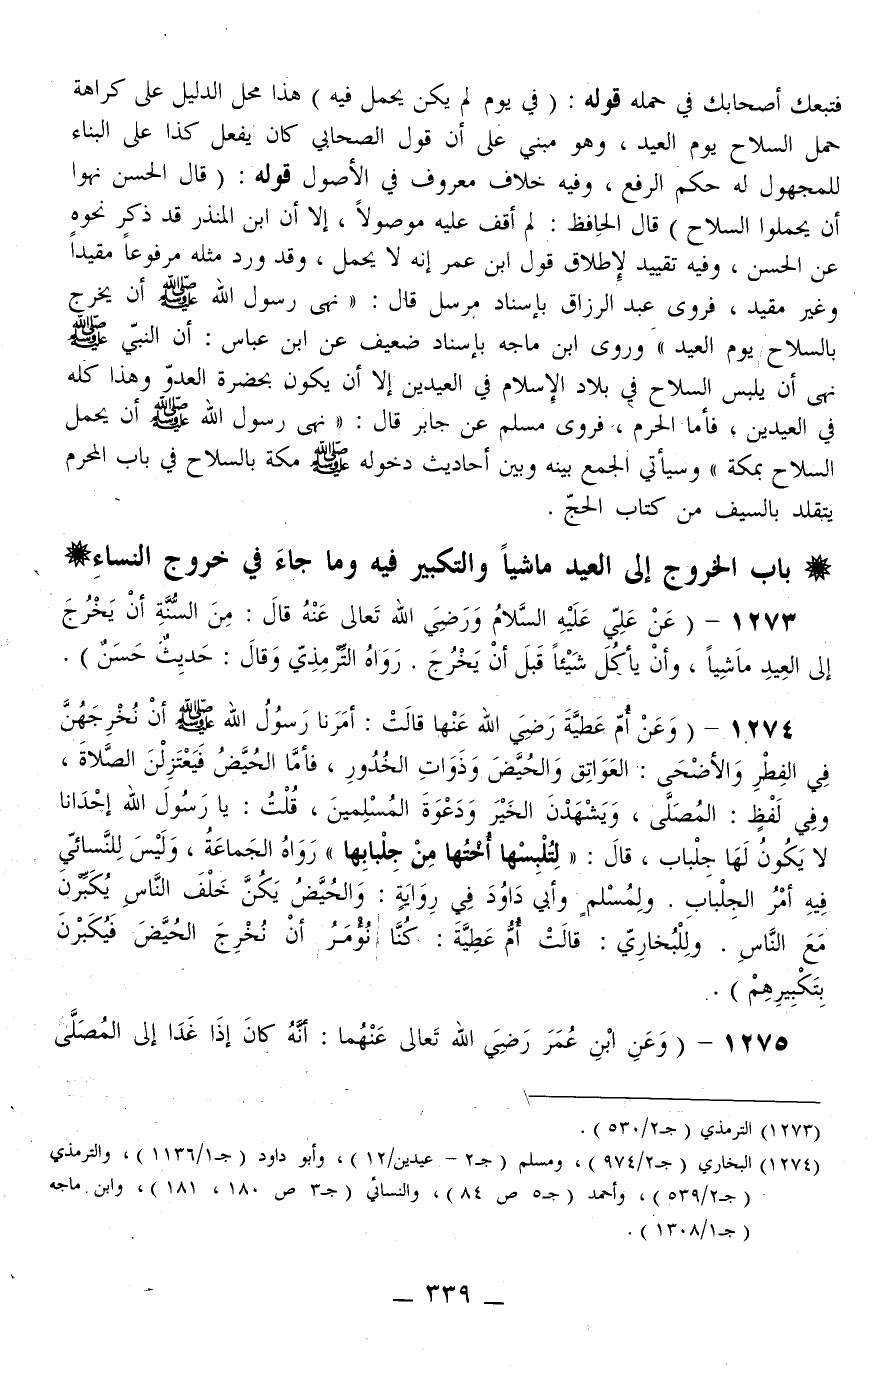 فتبعك أصحابك في حمله قوله : ( في يوم لم يكن يحمل فيه ) هذا محل الدليل على كراهة
حمل السلاح يوم العيد ، وهو مبني على أن قول الصحابي كان يفعل كذا على البناء
للمجهول له حكم الرفع ، وفيه خلاف معروف في الأصول قوله : ( قال الحسن نهوا
أن يحملوا السلاح ) قال الحافظ : لم أقف عليه موصولاً ، إلا أن ابن المنذر قد ذكر نحوه
عن الحسن ، وفيه تقييد لإطلاق قول ابن عمر إنه لا يحمل ، وقد ورد مثله مرفوعاً مقيداً
وغير مقيد ، فروى عبد الرزاق بإسناد مرسل قال : « نهى رسول الله ﷺ أن يخرج
بالسلاح يوم العيد » وروى ابن ماجه بإسناد ضعيف عن ابن عباس : أن النبيّ ﷺ
نهى أن يلبس السلاح في بلاد الإسلام في العيدين إلا أن يكون بحضرة العدوّ وهذا كله
في العيدين ، فأما الحرم ، فروى مسلم عن جابر قال : « نهى رسول الله ﷺ أن يحمل
السلاح بمكة » وسيأتي الجمع بينه وبين أحاديث دخوله ﷺ مكة بالسلاح في باب المحرم
يتقلد بالسيف من كتاب الحجّ .
باب الخروج إلى العيد ماشياً والتكبير فيه وما جاءَ في خروج النساءِ
١٢٧٣ – ( عَنْ عَلِيّ عَلَيْهِ السَّلَامُ وَرَضِيَ الله تَعالى عَنْهُ قالَ : مِنَ السُّنَّةِ أنْ يَخْرُجَ
إلى العِيدِ ماَشِياً ، وأنْ يأكُلَ شَيْئاً قَبلَ أنْ يَخْرُجَ . رَوَاهُ التِّرْمِذِيّ وَقالَ : حَديثٌ حَسَنٌ ) .
١٢٧٤ – ( وَعَنْ أُمّ عَطِيَّةَ رَضِيَ الله عَنْها قالَتْ : أمَرَنا رَسولُ الله ﷺ أنْ نُخْرِجَهُنَّ
فِي الفِطْرِ وَالأضْحَى : العَوَاتِق وَالحُيَّضَ وَذَوَاتِ الخُدُورِ ، فأمَّا الحُيَّضُ فَيَعْتَزِلْنَ الصَّلاةَ ،
وفِي لَفْظٍ : المُصَلَّى ، وَيَشْهَدْنَ الخَيْرَ وَدَعْوَةَ المُسْلِمينَ ، قُلْتُ : يا رَسُولَ الله إحْدَانا
لا يَكُونُ لَهَا جِلْباب ، قالَ : « لِتُلْبِسْها أُخْتُها مِنْ جِلْبابِها » رَوَاهُ الجَماعَةُ ، وَلَيْسَ لِلنَّسائيّ
فِيهِ أمْرُ الجِلْبابِ . ولِمُسْلمٍ وأبي دَاوُدَ فِي رِوَايَةٍ : وَالحُيَّضُ يَكُنَّ خَلْفَ النَّاسِ يُكَبِّرْنَ
مَعَ النَّاسِ . ولِلْبُخارِيّ : قالَتْ أُمُّ عَطِيَّةَ : كُنَّا نُؤْمَرُ أنْ نُخْرِجَ الحُيَّضَ فَيُكَبِّرْنَ
بِتَكْبِيرِهِمْ ) .
١٢٧٥ – ( وَعَنِ ابْنِ عُمَرَ رَضِيَ الله تَعالى عَنْهُما : أنَّهُ كانَ إذَا غَدَا إلى المُصَلَّى
(١٢٧٣) الترمذي ( جـ٥٣٠/٢ ) .
(١٢٧٤) البخاري ( جـ٩٧٤/٢ )، ومسلم ( جـ٢ – عيدين/١٢ )، وأبو داود ( جـ١١٣٦/١ )، والترمذي
( جـ٥٣٩/٢ )، وأحمد ( جـ٥ ص ٨٤ )، والنسائي ( جـ٣ ص ١٨٠ ، ١٨١ )، وابن ماجه
( جـ١٣٠٨/١ ) .
– ٣٣٩ –